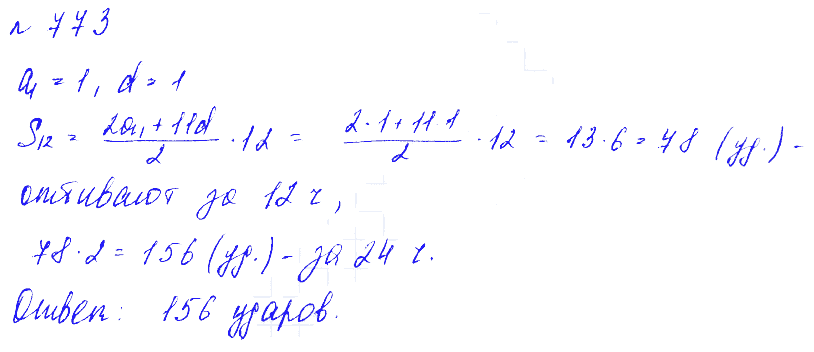 № 773
a₁ = 1, d = 1
S₁₂ = (2a₁ + 11d)/2 · 12 = (2 · 1 + 11 · 1)/2 · 12 = 13 · 6 = 78 (уд.) –
отбивают за 12 ч,
78 · 2 = 156 (уд.) – за 24 ч.
Ответ: 156 ударов.